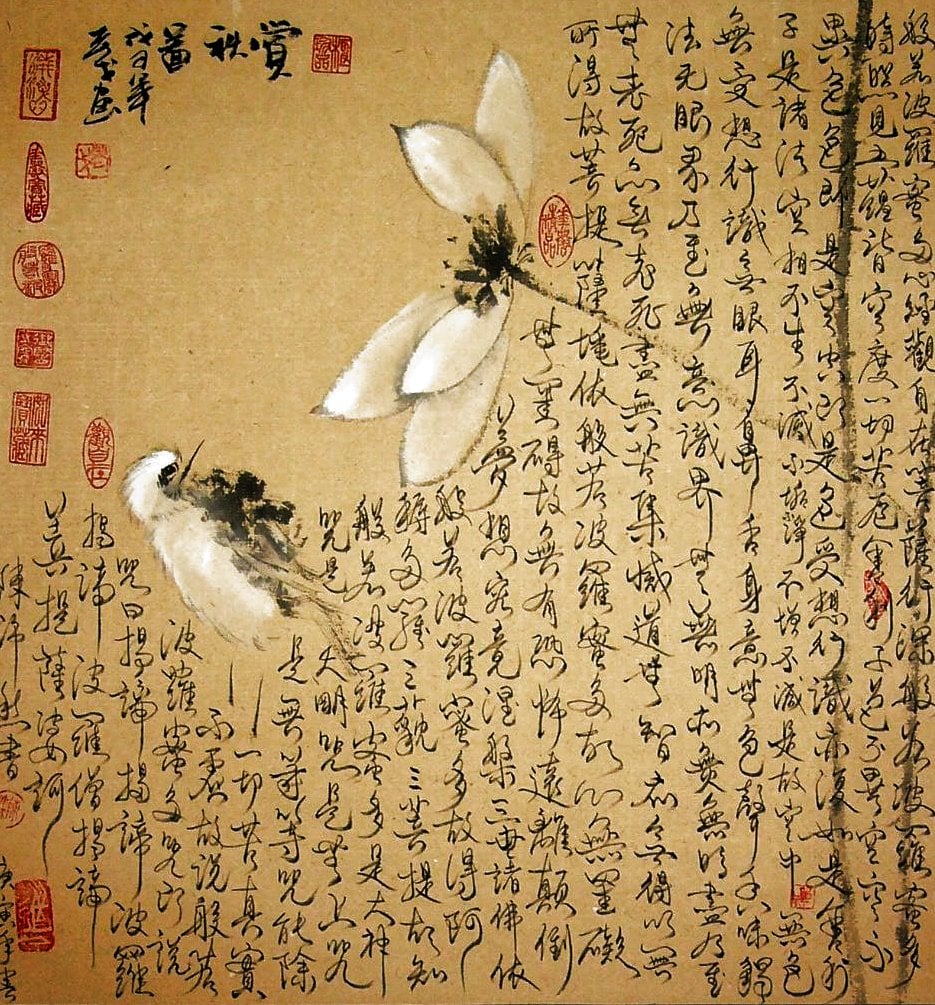 般若波羅蜜多心經觀自在菩薩行深般若波羅蜜多
時照見五蘊皆空度一切苦厄舍利子色不異空空不
異色色即是空空即是色受想行識亦復如是舍利
子是諸法空相不生不滅不垢淨不增不減是故空中無色
無受想行識無眼耳鼻舌身意無色聲香味觸
法无眼界乃至無意識界無無明亦無無明盡乃至
無老死亦無老死盡無苦集滅道無智亦無得以無
所得故菩提薩埵依般若波羅蜜多故心無罣礙
無罣礙故無有恐怖遠離顛倒
夢想究竟涅槃三世諸佛依
般若波羅蜜多故得阿
耨多羅三藐三菩提故知
般若波羅蜜多是大神
咒是大明咒是無上咒
是無等等咒能除
一切苦真實
不虛故說般若
波羅蜜多咒即說
咒曰揭諦揭諦波羅
揭諦波羅僧揭諦
菩提薩婆訶
書
庚寅年書
賞秋圖
年
畫
觀自在